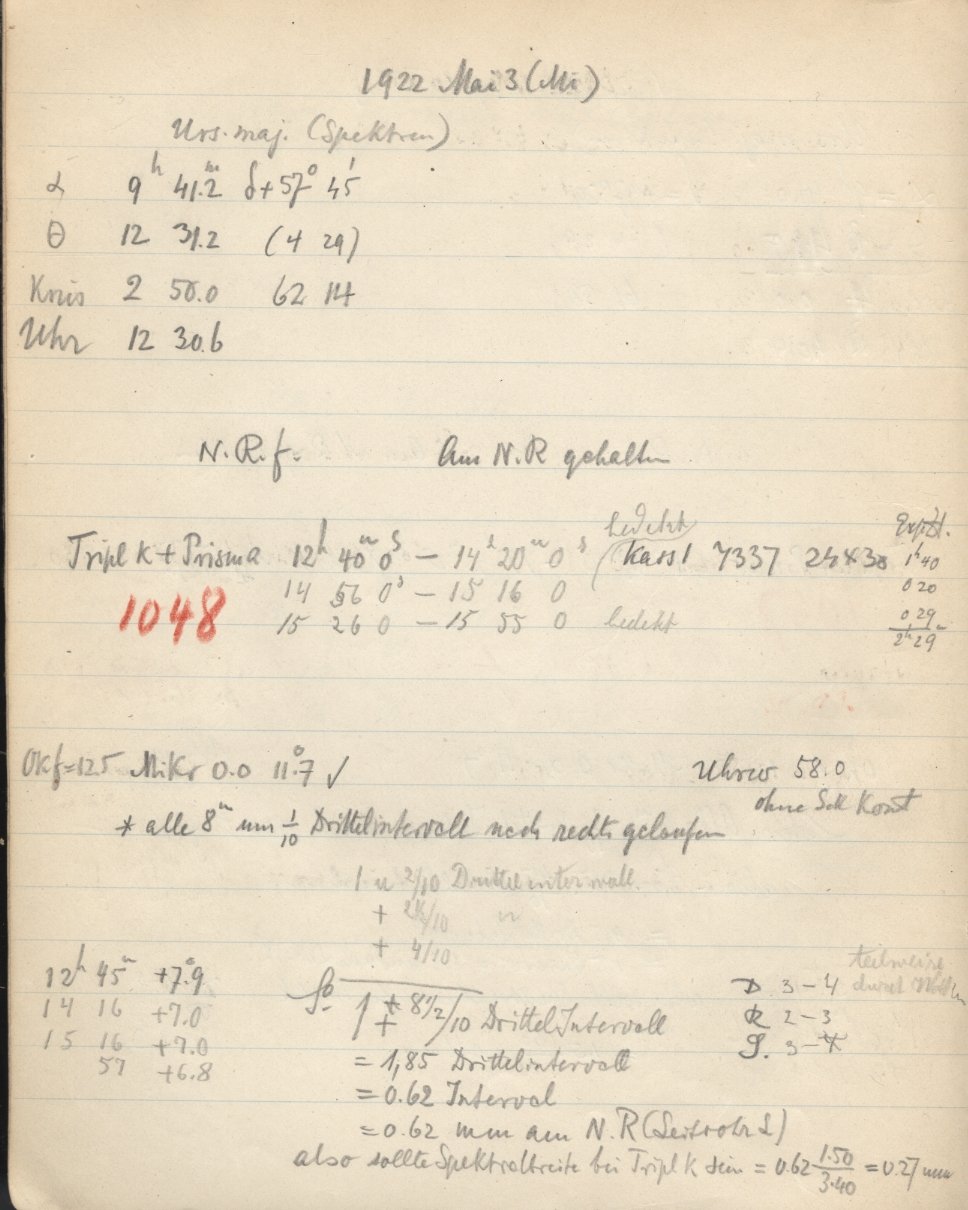 1922 Mai 3 (Mi)
Urs. maj. (Spektren)
α 9h 41.2m δ+57° 45'
θ 12 31.2 (4 29)
Kreis 2 50.0 62 14
Uhr 12 30.6
N.R.f. Am N.R gehalten
bedeckt Exp.
Tripl K + Prisma 12h 40m 0s — 14h 20m 0s (Kass 1 7337 24×30 1h40
14 56 0s — 15 16 0 0 20
1048 15 26 0 — 15 55 0 bedekt 0 29
2h 29m
Okf=12.5 Mikr 0.0 11.°7 ✓ Uhrw 58.0
ohne Sek Kont
* alle 8m um 1/10 Drittelintervall nach rechts gelaufen
1 u 2/10 Drittelintervall.
+ 2½/10 "
+ 4/10
12h 45m +7.°9 teilweise
14 16 +7.0 So 1 + 8½/10 DrittelIntervall D 3-4 durch
15 16 +7.0 R 2-3
57 +6.8 = 1,85 Drittelintervall S. 3-4
= 0.62 Interval
= 0.62 mm am N.R (Leitrohr L)
also sollte Spektralbreite bei Tripl K sein = 0.62 1.50/3.40 = 0.27 mm